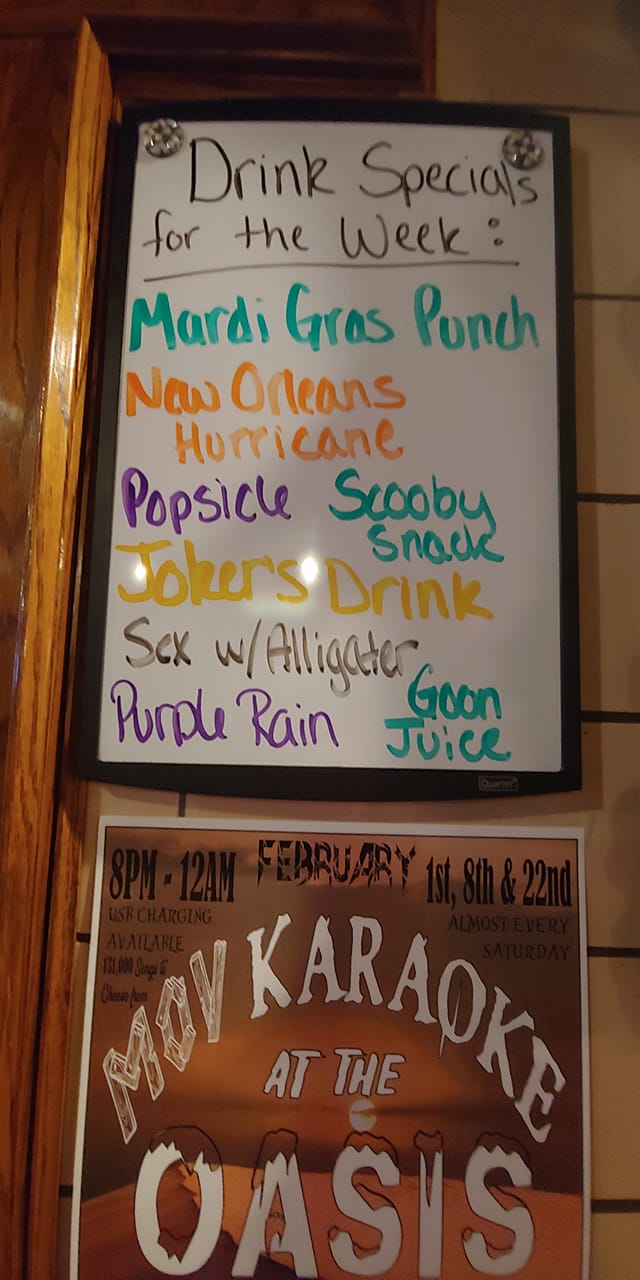 Drink Specials
for the Week:
Mardi Gras Punch
New Orleans
Hurricane
Popsicle
Scooby
Snack
Joker's Drink
Sex w/Alligater
Purple Rain
Goon
Juice
Quartet
8PM - 12AM
FEBRUARY
1st, 8th & 22nd
USB CHARGING
AVAILABLE
131,000 Songs to
Choose from
ALMOST EVERY
SATURDAY
MOV KARAOKE
AT THE
OASIS